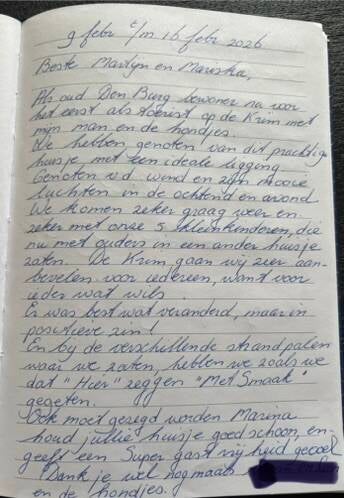 9 febr t/m 16 febr 2026
Beste Martijn en Mariska,
Als oud Den Burg bewoner nu voor
het eerst als toerist op de Krim met
mijn man en de hondjes.
We hebben genoten van dit prachtige
huisje met een ideale ligging
Genoten v.d. wind en zijn mooie
luchten in de ochtend en avond
We komen zeker graag weer en
zeker met onze 5 kleinkinderen, die
nu met ouders in een ander huisje
zaten. De Krim gaan wij zeer aan-
bevelen voor iedereen, want voor
ieder wat wils.
Er was best wat veranderd, maar in
positieve zin!
En bij de verschillende strandpalen
waar we zaten, hebben we zoals we
dat "Hier" zeggen "Met Smaak"
gegeten.
Ook moet gezegd worden Marina
houd jullie huisje goed schoon, en
geeft een Super gastvrij heid gevoel
Dank je wel nogmaals
en de hondjes.